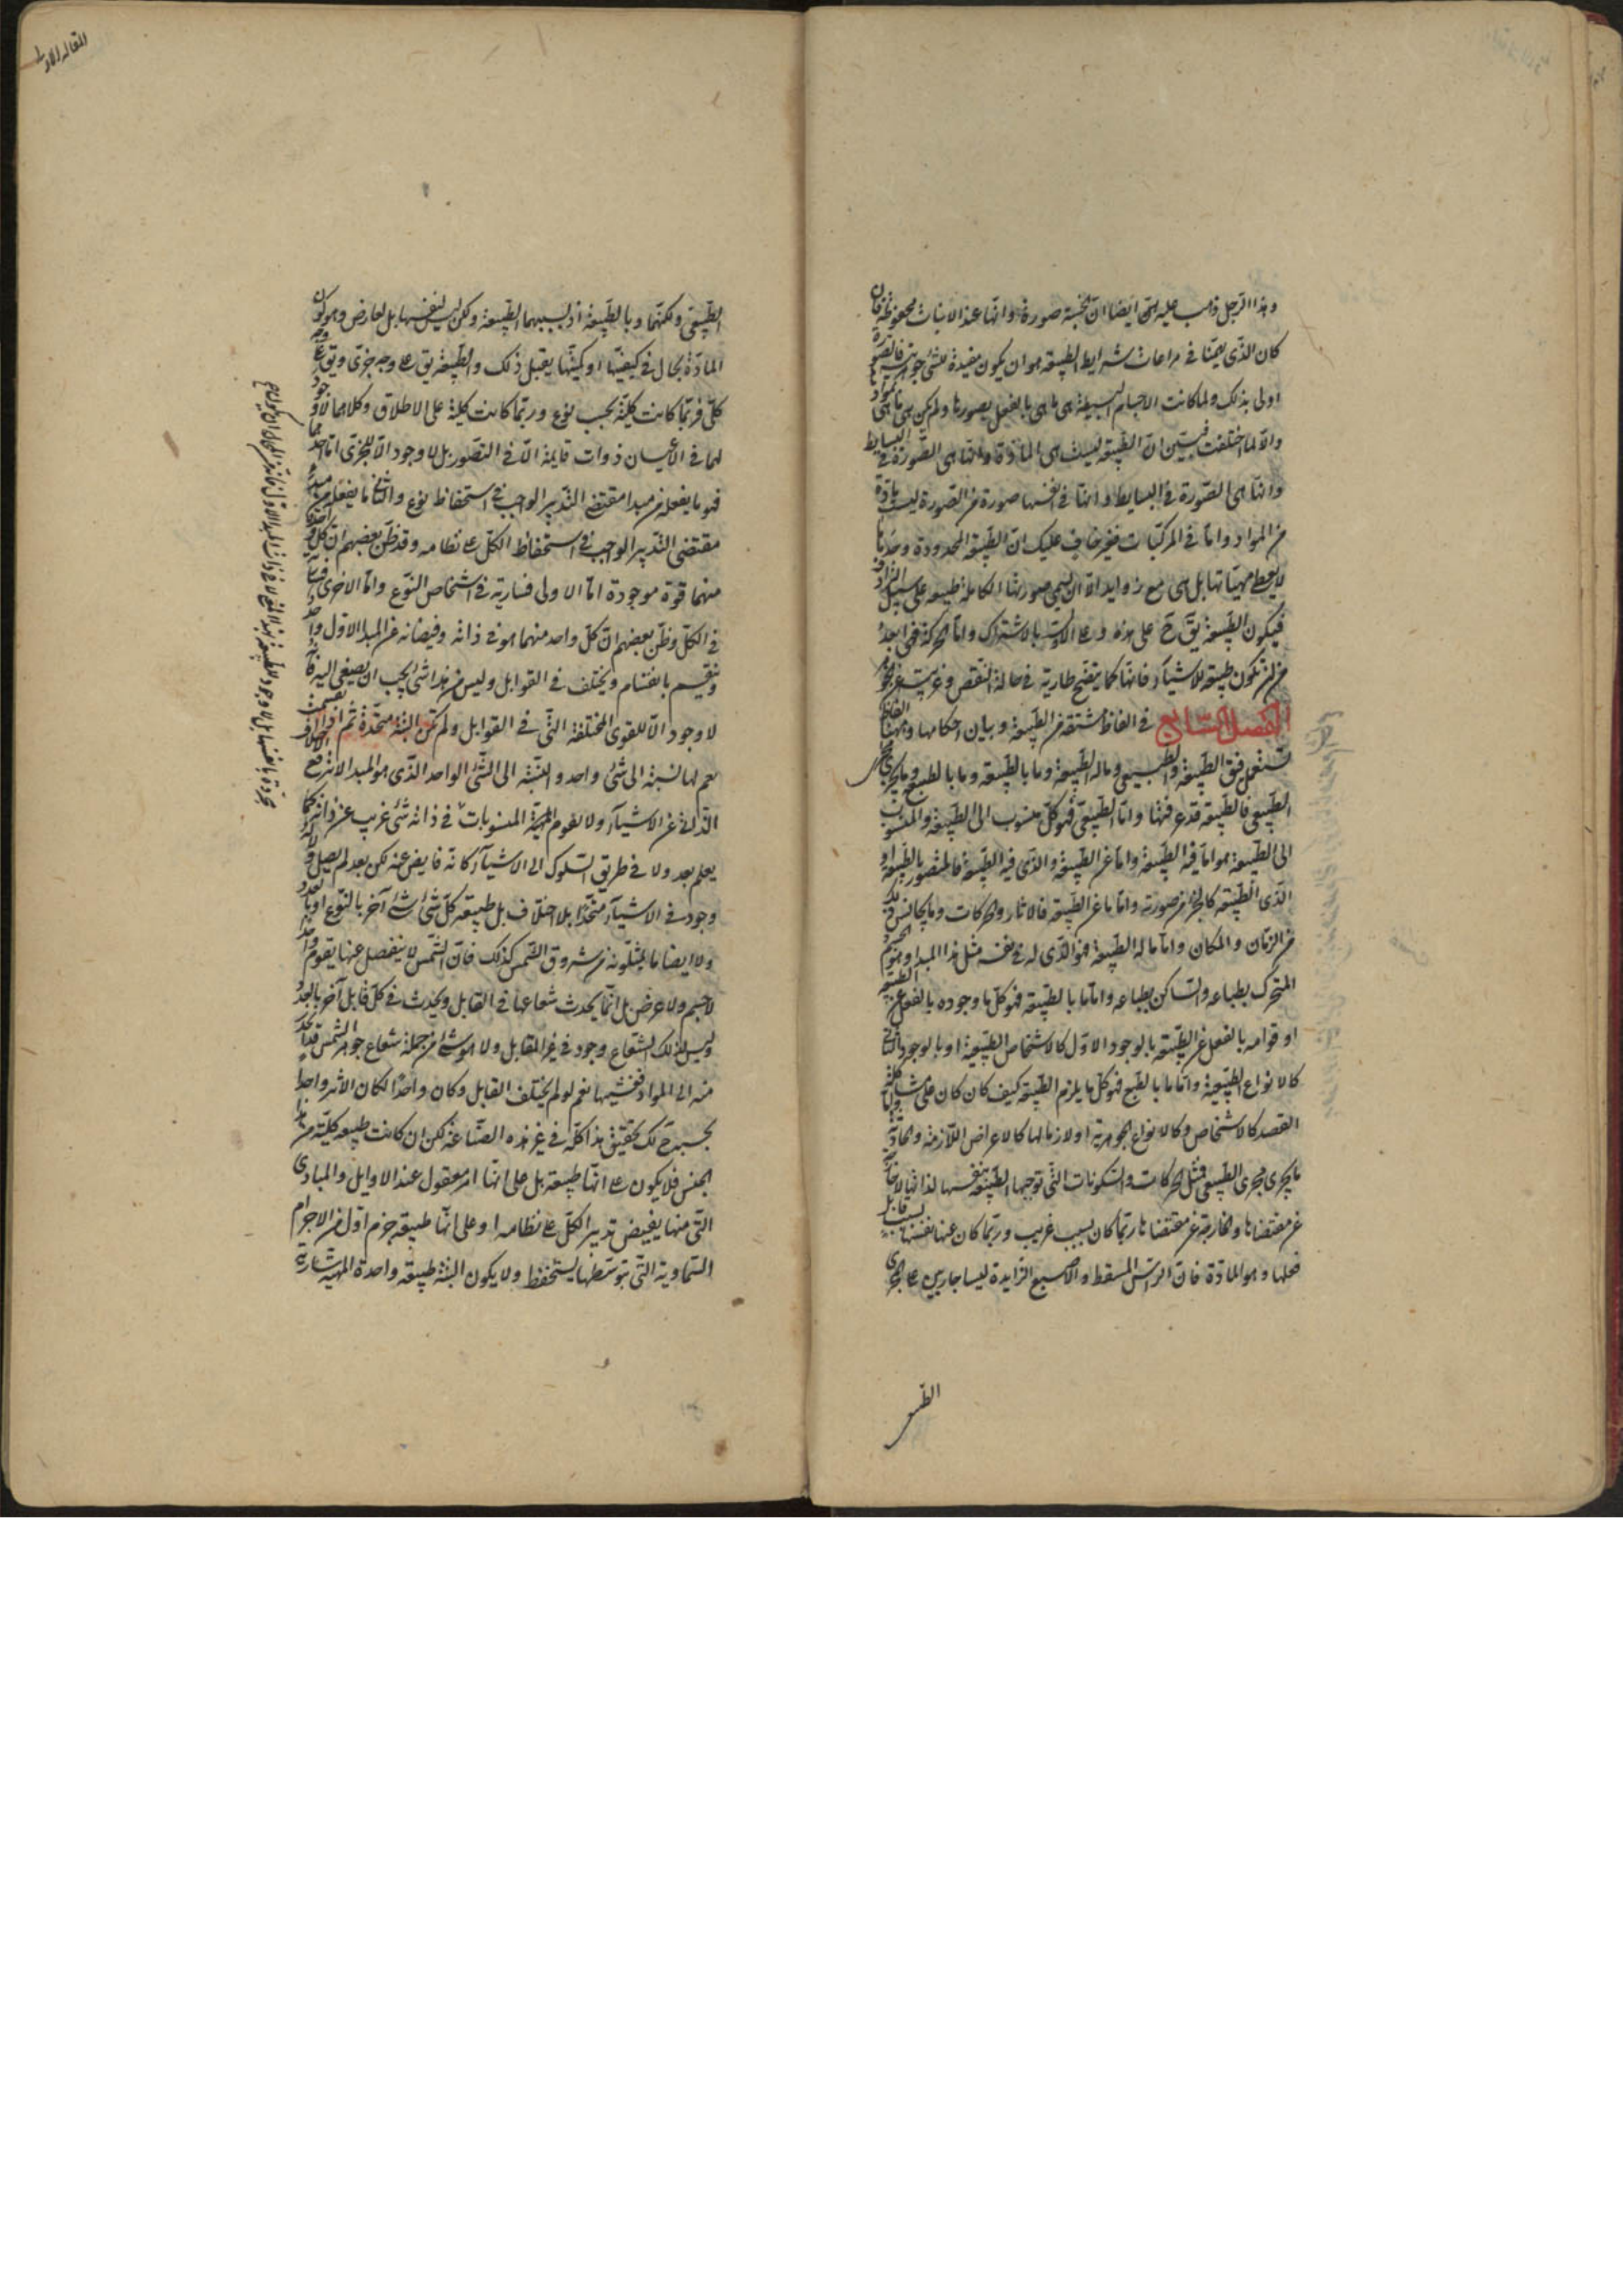 وهذا الرجل ذهب عليه شئ ايضا ان الخشبة صورة وانها عند الانبات محفوظة فان
كان الذى يهمنا فى مراعات شرايط الطبيعة هو ان يكون مفيدة للشئ جوهريته فالصورة
اولى بذلك ولما كانت الاجسام البسيطة هى ما هى بالفعل بصورها ولم يكن هى ما هى بموادها
والا لما اختلفت فبين ان الطبيعة ليست هى المادة وانها هى الصورة فى البسايط
وانها هى الصورة فى البسايط وانها فى نفسها صورة من الصور ليست مادة
من المواد واما فى المركبات فغير خاف عليك ان الطبيعة المحدودة وحدها
لا يعطى مهياتها بل هى مع زوايد الا ان يسمى صورتها الكاملة طبيعة على سبيل الترادف
فيكون الطبيعة يق ح على هذه وعلى الاول بالاشتراك واما الحركة فهى ابعد
من ان تكون طبيعة للاشياء فانها كما يتضح طارية فى حالة النقص وغريبة عن الجوهر
الفصل السادس فى الفاظ مشتقة من الطبيعة وبيان احكامها وههنا الفاظ
تستعمل فيق الطبيعة والطبيعى وما له الطبيعة وما بالطبيعة وما بالطبع وما يجرى مجرى
الطبيعى فالطبيعة قد عرفتها واما الطبيعى فهو كل منسوب الى الطبيعة والمنسوب
الى الطبيعة هو اما فيه الطبيعة واما عن الطبيعة والذى فيه الطبيعة فالمتصور بالطبيعة او
الذى الطبيعة كالجزء من صورته واما ما عن الطبيعة فالاثار والحركات وما يجانس ذلك
من الزمان والمكان واما ما له الطبيعة فهو الذى له فى نفسه مثل هذا المبدا وهو الجسم
المتحرك بطباعه والساكن بطباعه واما ما بالطبيعة فهو كل ما وجوده بالفعل عن الطبيعة
او قوامه بالفعل عن الطبيعة بالوجود الاول كالاشخاص الطبيعية او بالوجود الثانى
كالانواع الطبيعية واما ما بالطبع فهو كل ما يلزم الطبيعة كيف كان كان على مشاكلة
القصد كالاشخاص وكالانواع الجوهرية او لازما لها كالاعراض اللازمة والحادثة واما
ما يجرى مجرى الطبيعى فمثل الحركات والسكونات التى توجبها الطبيعة بنفسها لذاتها لا خارجا
عن مقتضاها والخارجة عن مقتضاها ربما كان بسبب غريب وربما كان عنها نفسها بسبب قابل
فعلها وهو المادة فان الراس المسفط والاصبع الزايدة ليسا جاريين على المجرى
الطبيعى
المقالة الاولى
الطبيعى ولكنهما وبالطبيعة اذ لسببهما الطبيعة ولكن ليس لنفسها بل لعارض وهو كون
المادة بحال فى كيفيتها او كميتها يقبل ذلك والطبيعة يق على وجه جزئى ويق على وجه
كلى فربما كانت كلية بحسب نوع وربما كانت كلية على الاطلاق وكلاهما لا وجود
لهما فى الاعيان ذوات قايمة الا فى التصور بل لا وجود الا للجزئى اما احدهما
فهو ما يفعله من مبدا مقتضى التدبير الواجب فى استحفاظ نوع والثانى ما يفعله من مبدا
مقتضى التدبير الواجب فى استحفاظ الكل على نظامه وقد ظن بعضهم ان كل واحد
منهما قوة موجودة اما الاولى فسارية فى اشخاص النوع واما الاخرى فسارية
فى الكل وظن بعضهم ان كل واحد منهما هو فى ذاته وفيضانه عن المبدا الاول واحد
وينقسم بانقسام ويختلف فى القوابل وليس من هذا شئ يجب ان يصغى اليه فانه
لا وجود الا للقوى المختلفة التى فى القوابل ولم تكن البتة متحدة ثم انقسمت
نعم لها نسبة الى شئ واحد والنسبة الى الشئ الواحد الذى هو المبدا لا ترفع الاختلاف
الذاتى عن الاشياء ولا يقوم المنسوبات فى ذاته شئ غريب عن ذاته كما
يعلم بعد ولا فى طريق السلوك الى الاشياء كانه فايض عنه لكن بعد لم يصل ولا له
وجود فى الاشياء متحدا بلا اختلاف بل طبيعة كل شئ شئ آخر بالنوع او بالعدد
ولا ايضا ما يمثلونه من شروق الشمس كذلك فان الشمس لا ينفصل عنها يقوم واحد
لا جسم ولا عرض بل انما يحدث شعاعها فى القابل ويحدث فى كل قابل آخر بالعدد
وليس لذلك الشعاع وجود فى غير القابل ولا هو شئ من جملة شعاع جوهر الشمس قد انحدر
منه الى المواد فغشيها نعم لو لم يختلف القابل وكان واحدا لكان الاثر واحدا
بحسبه ح لك تحقيق هذا كله فى غير هذه الصناعة لكن ان كانت طبيعة كلية من هذا
الجنس فلا يكون على انها طبيعة بل على انها امر معقول عند الاوايل والمبادى
التى منها يفيض تدبير الكل على نظامه او على انها طبيعة جرم اول من الاجرام
السماوية التى بتوسطها يستحفظ ولا يكون البتة طبيعة واحدة المهية سارية